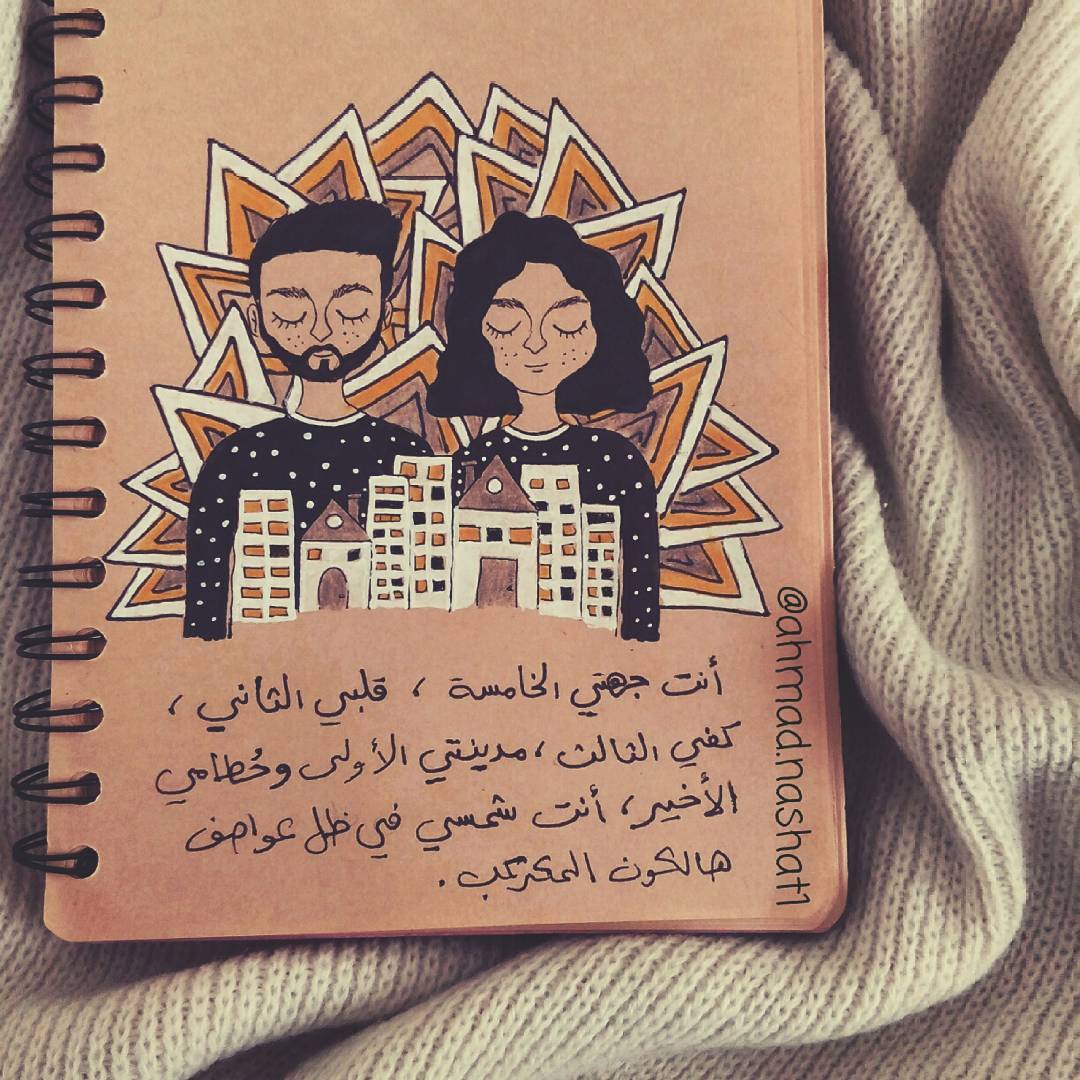 أنت جهتي الخامسة ، قلبي الثاني ،
كفي الثالث ، مدينتي الأولى وحُطامي
الأخير ، أنت شمسي في ظل عواصف
هالكون المكركب .
@ahmad.nashat1